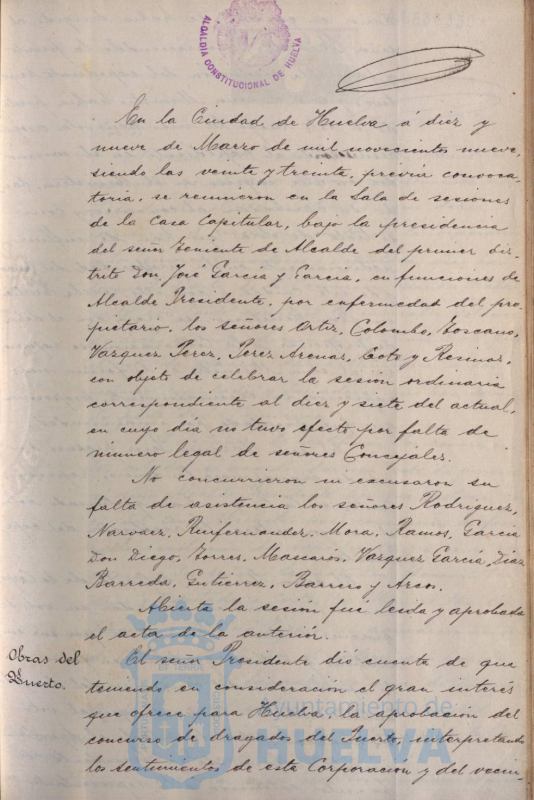 ALCALDIA CONSTITUCIONAL DE HUELVA
En la Ciudad de Huelva á diez y
nueve de Marzo de mil novecientos nueve,
siendo las veinte y treinta, prévia convoca-
toria, se reunieron en la Sala de sesiones
de la Casa Capitular, bajo la presidencia
del señor Teniente de Alcalde del primer dis-
trito Don José García y García, en funciones de
Alcalde Presidente, por enfermedad del pro-
pietario, los señores Ortiz, Colombo, Toscano,
Vazquez Perez, Perez Arenas, Coto y Resinas,
con objeto de celebrar la sesión ordinaria
correspondiente al diez y siete del actual,
en cuyo dia no tuvo efecto por falta de
número legal de señores Concejales.
No concurrieron ni excusaron su
falta de asistencia los señores Rodriguez,
Narvaez, Ruifernandez, Mora, Ramos, Garcia
Don Diego, Torres, Mascarós, Vazquez García, Diaz
Barreda, Gutierrez, Barrero y
Abierta la sesión fué leida y aprobada
el acta de la anterior.
Obras del
Puerto.
El señor Presidente dió cuenta de que
teniendo en consideración el gran interés
que ofrece para Huelva, la aprobación del
concurso de dragados del Puerto, interpretando
los sentimientos de esta Corporación y del vecin-
Ayuntamiento de
HUELVA